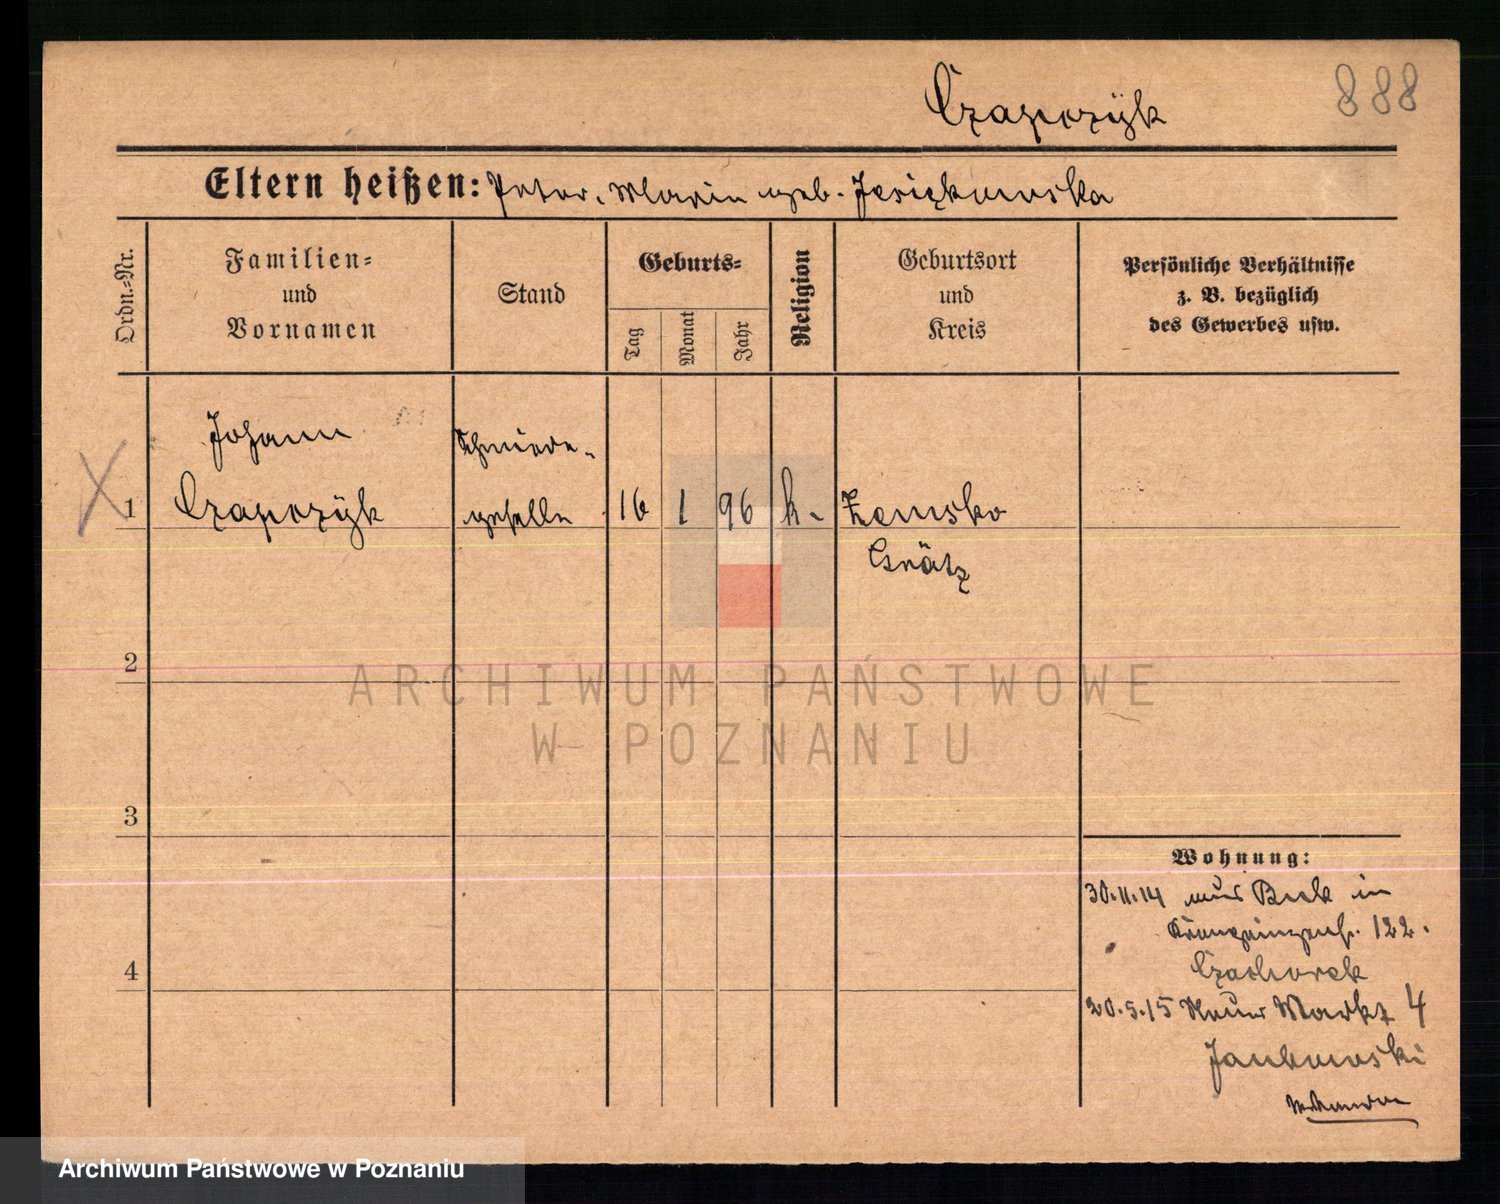 Czapczÿk
888
Eltern heißen: Peter, Maria geb. Jesiękowska
Ordn.-Nr.
Familien-
und
Vornamen
Stand
Geburts-
Tag
Monat
Jahr
Religion
Geburtsort
und
Kreis
Persönliche Verhältnisse
z. B. bezüglich
des Gewerbes usw.
Johann
Schmiede-
1 Czapczÿk geselle 16 1 96 k. Zemsko
Grätz
2
ARCHIWUM PAŃSTWOWE
W POZNANIU
3
Wohnung:
30.11.14 aus Buk in
Kronprinzenstr. 122.
4
Czachorek
20.5.15 Neuer Markt 4
Jankowski
Archiwum Państwowe w Poznaniu